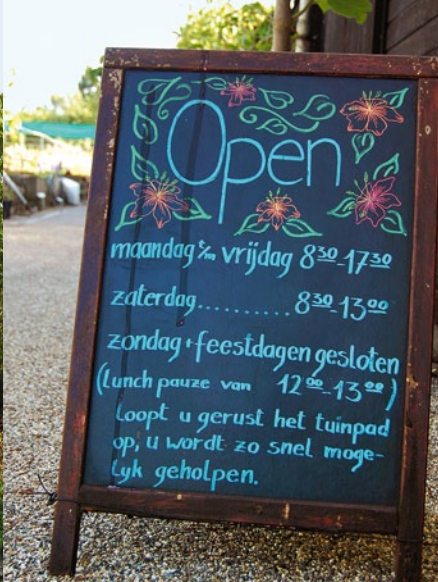 Open
maandag t/m vrijdag 8³⁰-17³⁰
zaterdag.......... 8³⁰-13⁰⁰
zondag + feestdagen gesloten
(Lunch pauze van 12⁰⁰-13⁰⁰)
Loopt u gerust het tuinpad
op, u wordt zo snel moge-
lyk geholpen.